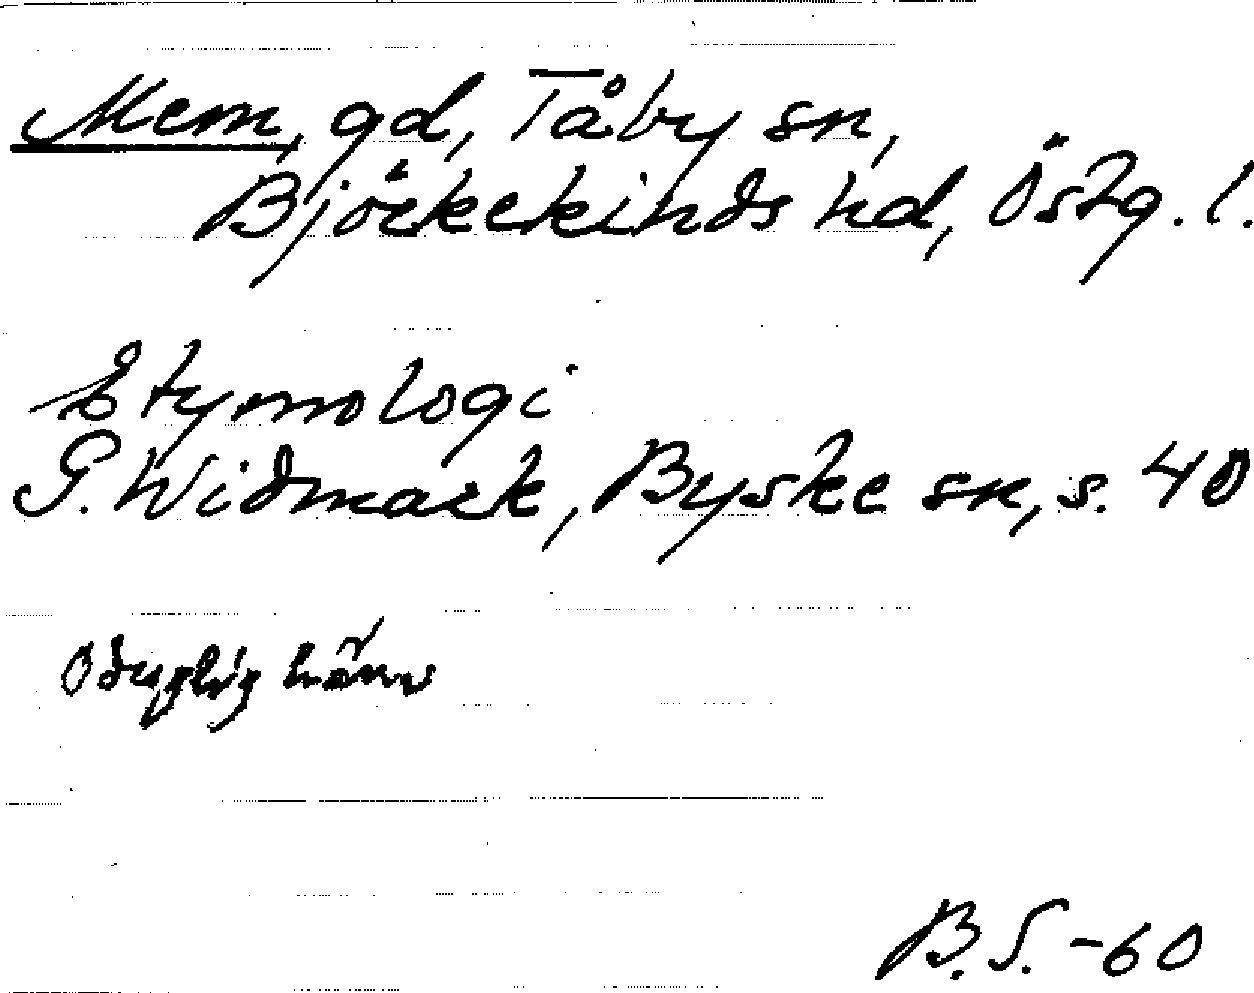 Mem, gd, Tåby sn,
Björkekinds hd, Östg. l.
Etymologi
G. Widmark, Byske sn, s. 40
Oduglig
B.S. -60